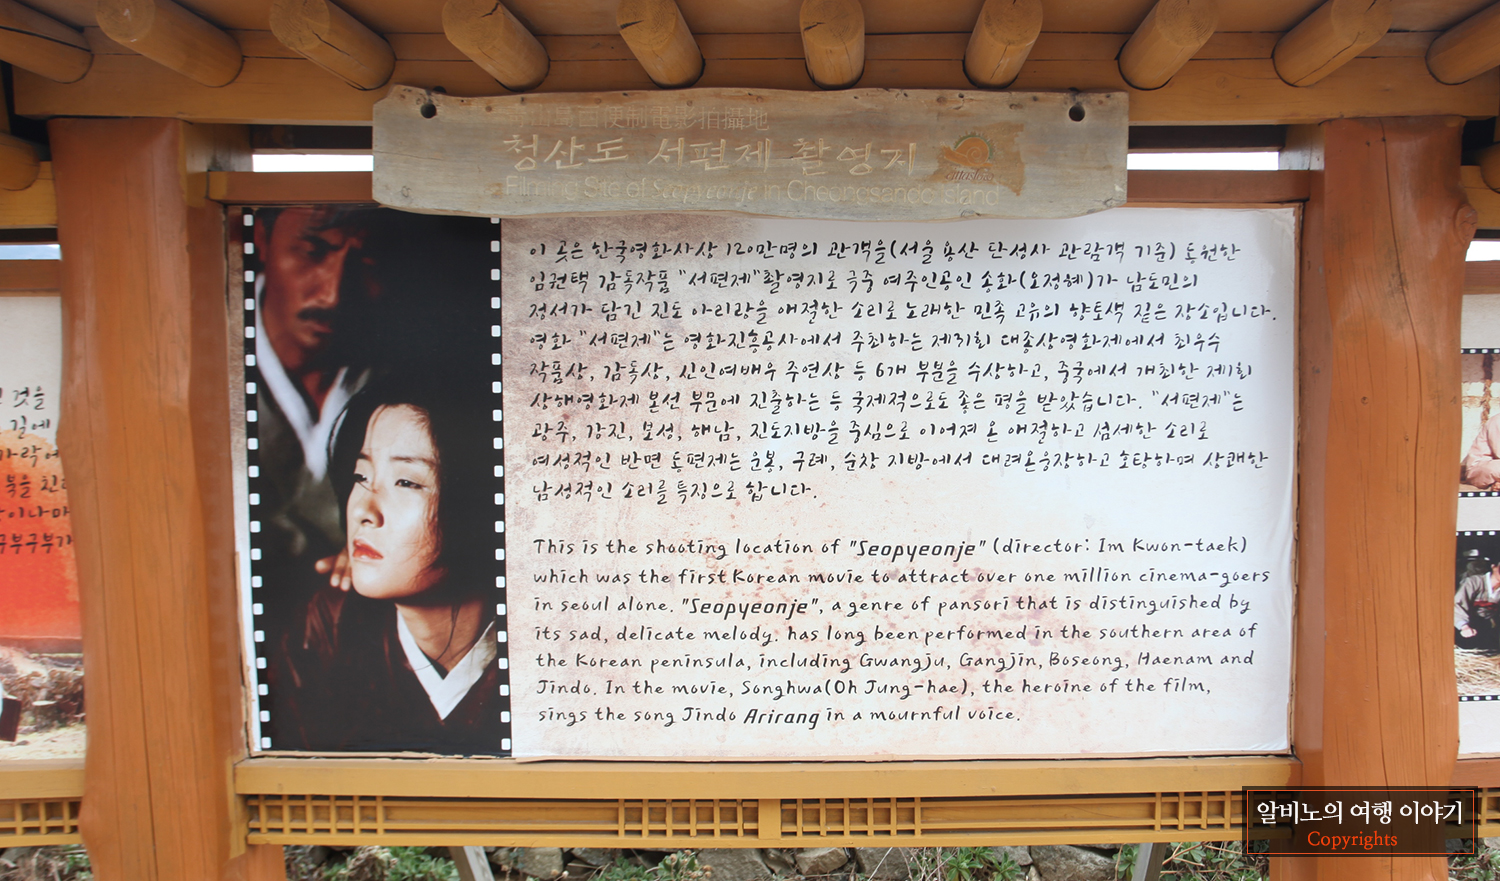 國楽制電影拍攝地
청산도 서편제 촬영지
Filming Site of Seopyeonje in Cheongsando Island
이 곳은 한국영화사상 120만명의 관객을(서울 용산 단성사 관람객 기준) 동원한
임권택 감독작품 "서편제"촬영지로 극중 여주인공인 송화(오정혜)가 남도민의
정서가 담긴 진도 아리랑을 애절한 소리로 노래한 민족 고유의 향토색 짙은 장소입니다.
영화 "서편제"는 영화진흥공사에서 주최하는 제31회 대종상영화제에서 최우수
작품상, 감독상, 신인여배우 주연상 등 6개 부분을 수상하고, 중국에서 개최한 제1회
상해영화제 본선 부문에 진출하는 등 국제적으로도 좋은 평을 받았습니다. "서편제"는
광주, 강진, 보성, 해남, 진도지방을 중심으로 이어져 온 애절하고 섬세한 소리로
여성적인 반면 동편제는 운봉, 구례, 순창 지방에서 대려온웅장하고 호탕하며 상쾌한
남성적인 소리를 특징으로 합니다.
This is the shooting location of "Seopyeonje" (director: Im Kwon-taek)
which was the first Korean movie to attract over one million cinema-goers
in seoul alone. "Seopyeonje", a genre of pansori that is distinguished by
its sad, delicate melody. has long been performed in the southern area of
the Korean peninsula, including Gwangju, Gangjin, Boseong, Haenam and
Jindo. In the movie, Songhwa(Oh Jung-hae), the heroine of the film,
sings the song Jindo Arirang in a mournful voice.
것을
길에
가락에
북을 친
이나마
구부구부가
알비노의 여행 이야기
Copyrights